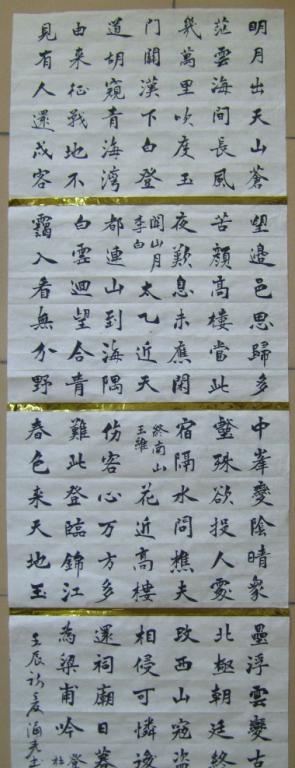 明月出天山蒼
茫雲海間長風
幾萬里吹度玉
門關漢下白登
道胡窺青海灣
由來征戰地不
見有人還戍客
望邊邑思歸多
苦顏高樓當此
夜歎息未應閑
關山月
李白
太乙近天
都連山到海隅
白雲迴望合青
靄入看無分野
中峯變陰晴衆
壑殊欲投人處
宿隔水問樵夫
終南山
王維
花近高樓
傷客心万方多
難此登臨錦江
春色來天地玉
壘浮雲變古
北極朝廷終
改西山寇盜
相侵可憐後
還祠廟日暮
為梁甫吟
登
杜
壬辰